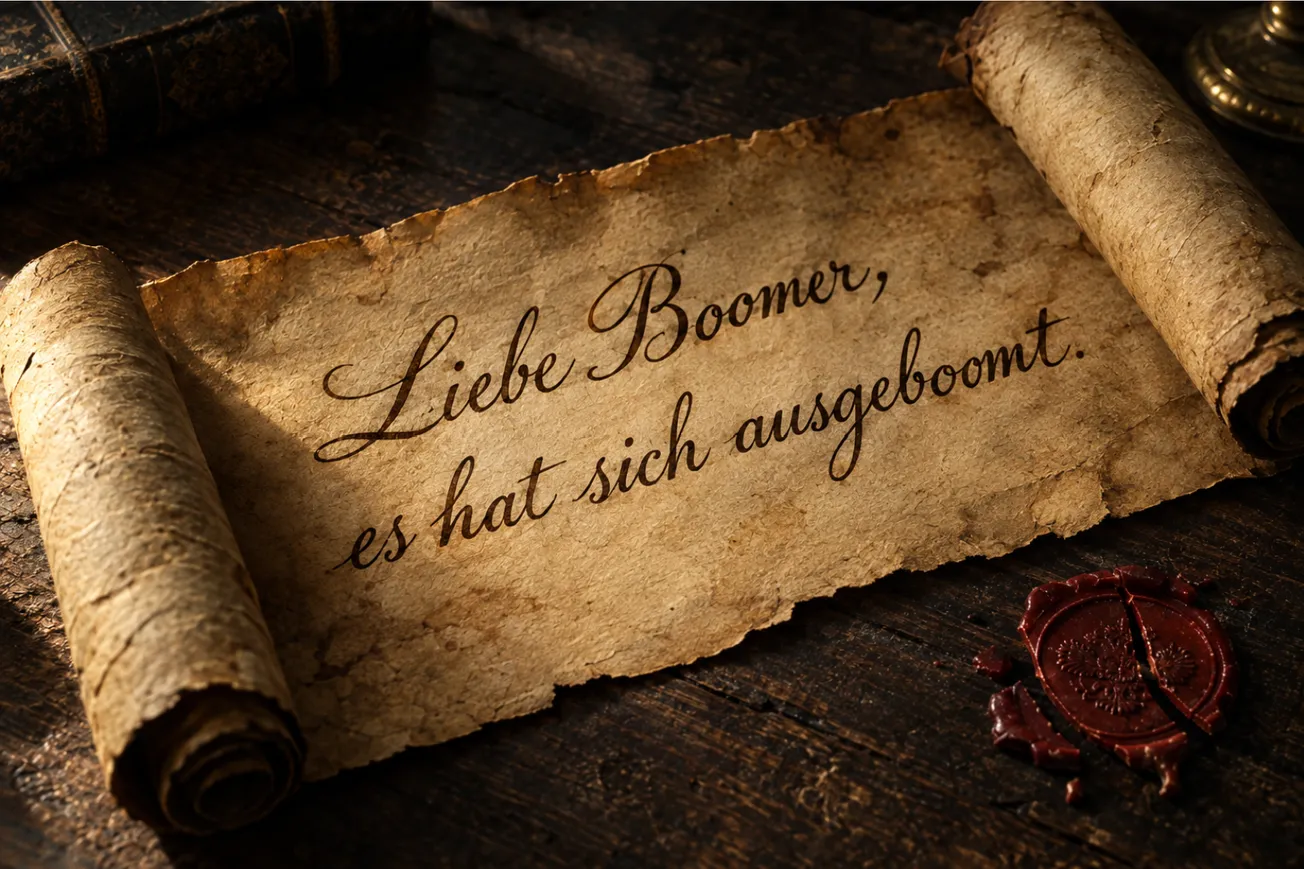 Liebe Boomer,
es hat sich ausgeboomt.